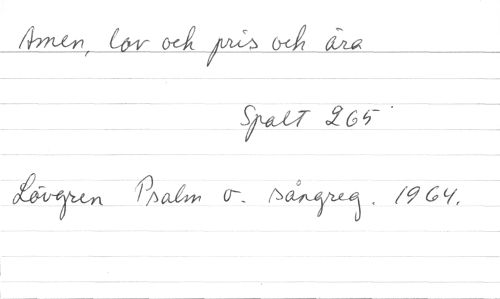 Amen, lov och pris och ära
Spalt 265
Lövgren Psalm o. sångreg. 1964.